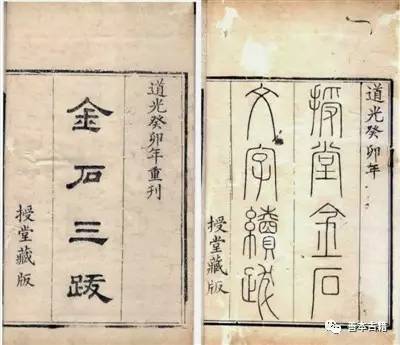 道光癸卯年重刊
金石三跋
授堂藏版
道光癸卯年
授堂金石
文字續跋
授堂藏版
善本古籍